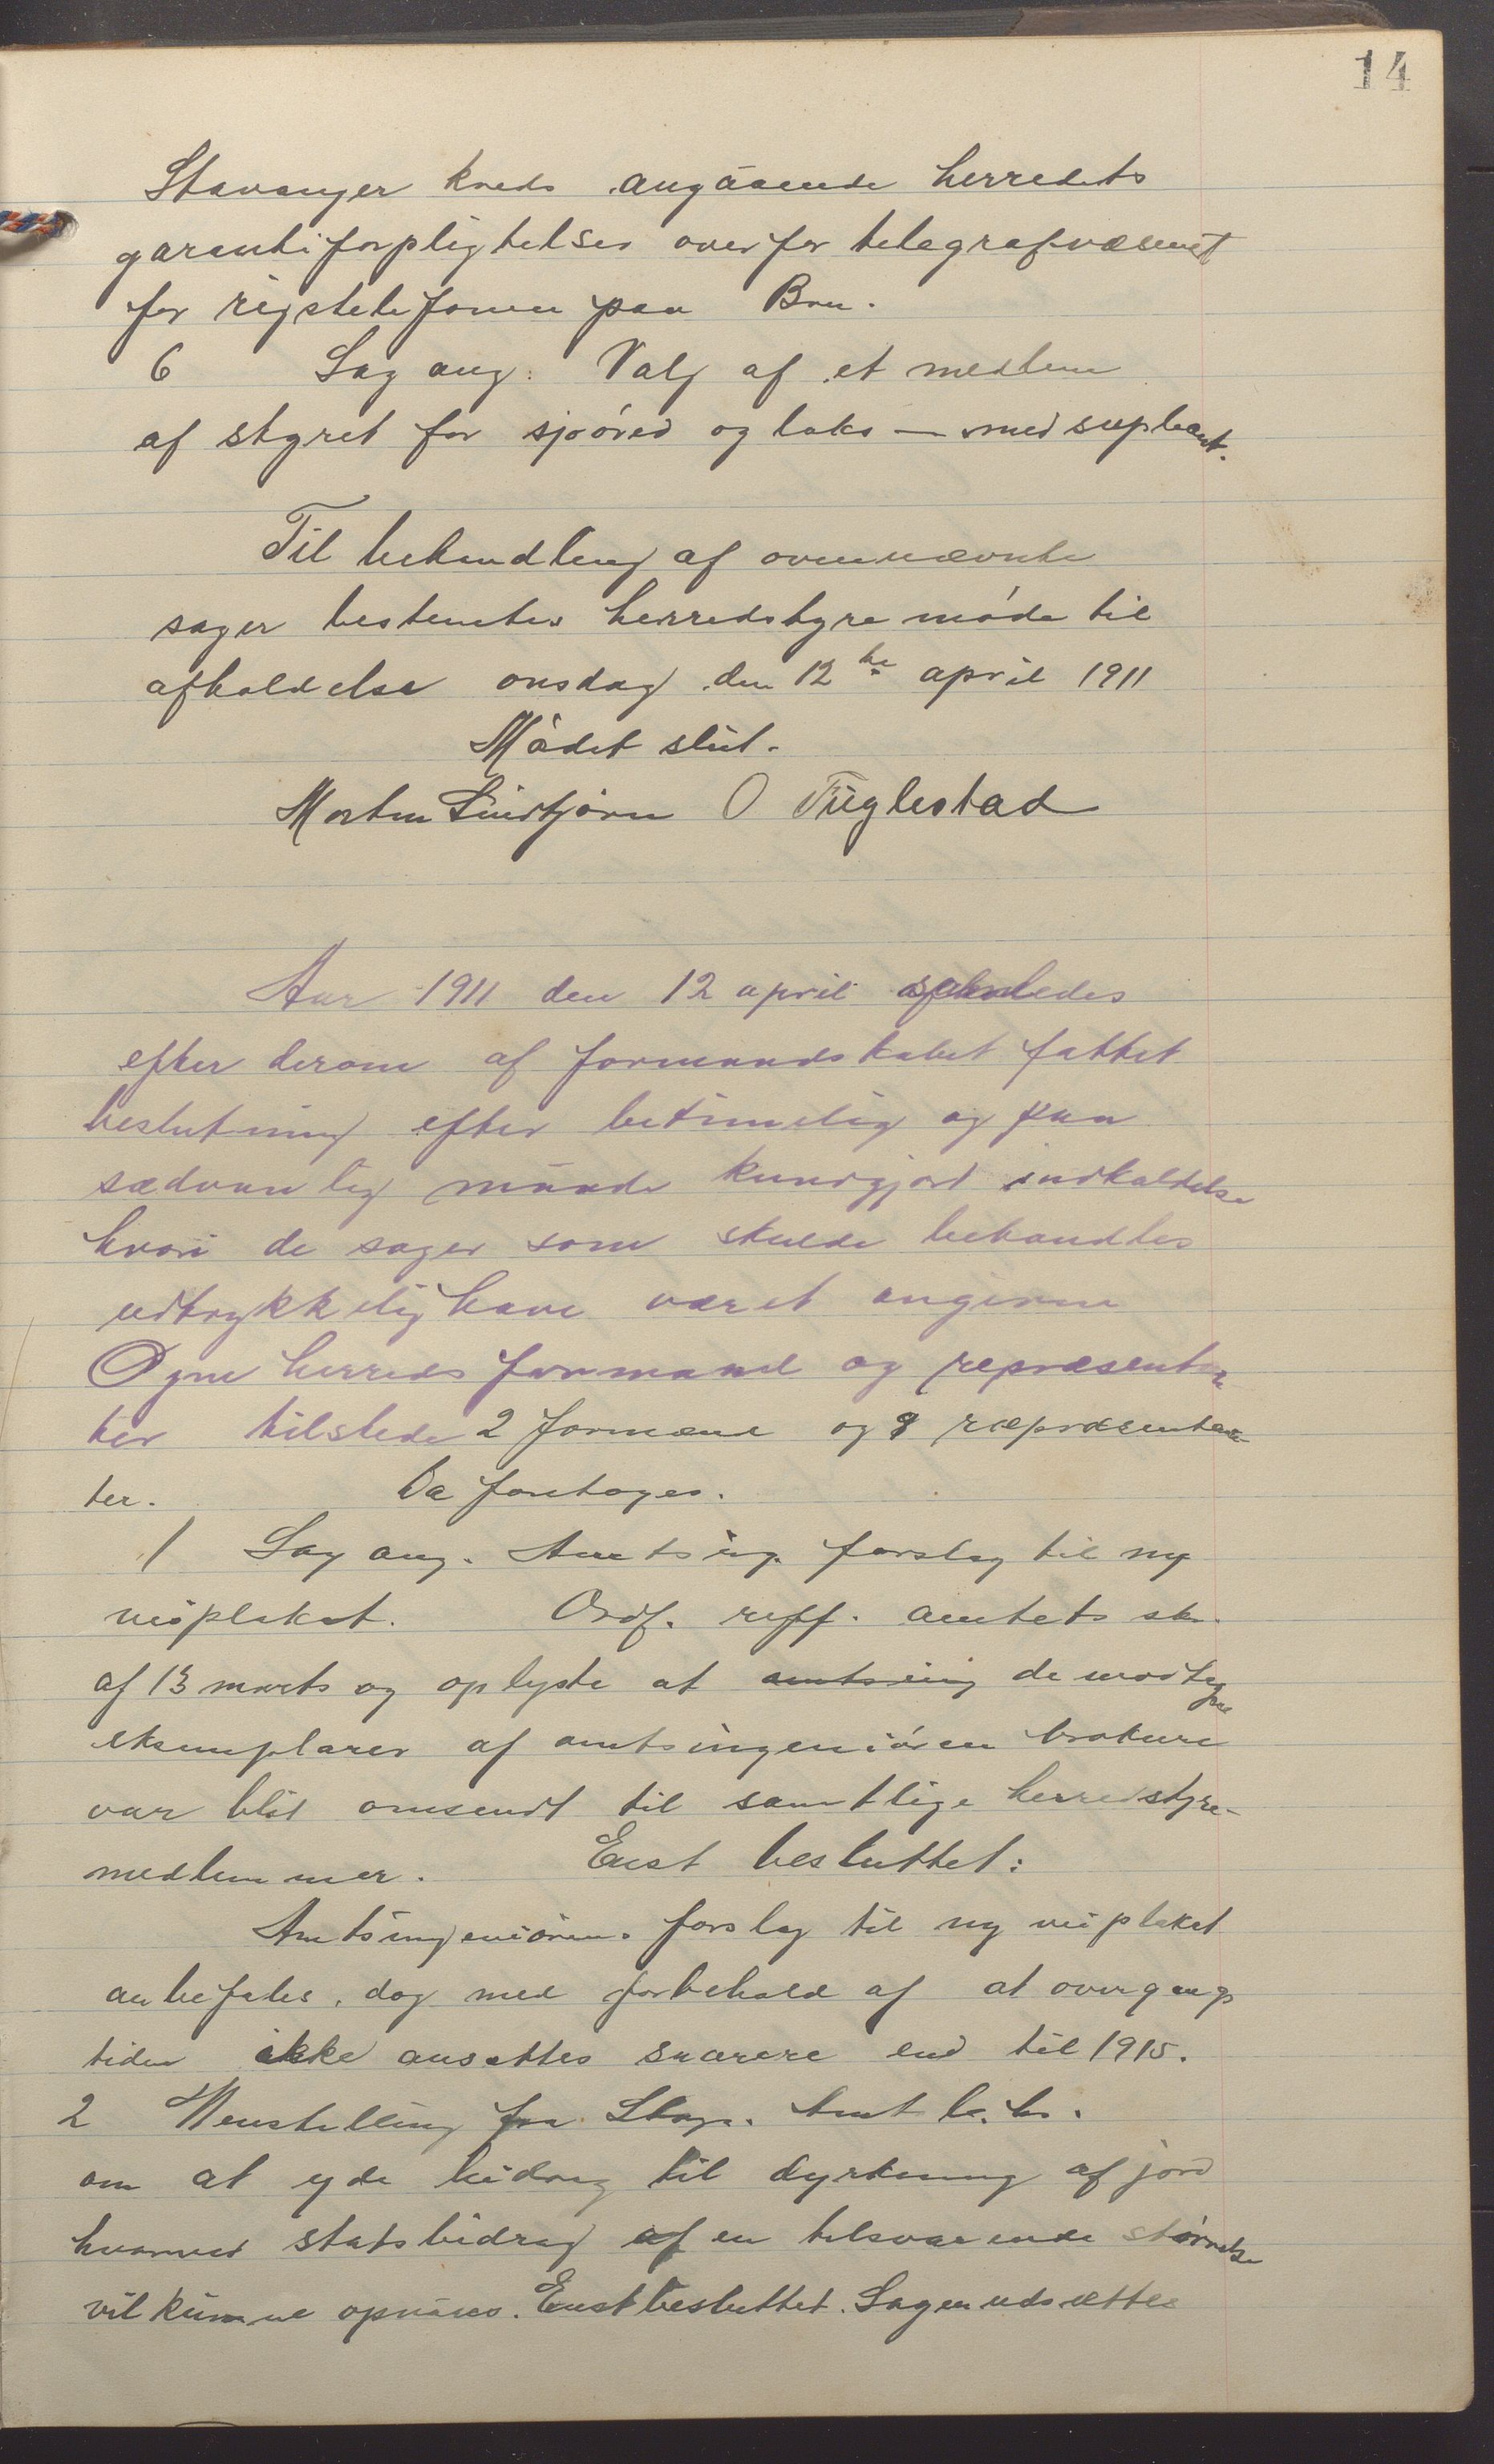 14
Stavanger kreds angåaende herredets
garantiforpligtelser overfor telegrafvæsenet
for rigstelefonen paa Bru.
6 Sag ang. Valg af et medlem
af styret for sjøöred og laks — med supleant.
Til behandling af ovennævnte
sager bestemtes herredstyremöde til
afholdelse onsdag den 12te april 1911
Mödet slut.
Morten Lindtjörn O Fuglestad
Aar 1911 den 12 april afholdedes
efter derom af formandskabet fattet
beslutning efter betimelig og paa
sædvanlig maade kundgjort indkaldelse
hvori de sager som skulde behandles
udtrykkelig have været angivne
Ogne herreds formand og repræsentan
ter tilstede 2 formænd og 8 repræsentan-
ter. Da foretoges.
1 Sag ang. Amtsing. forslag til ny
veiplakat. Ordf. reff. amtets sk.
af 13 marts og oplyste at amtsing de modtagne
eksemplarer af amtsingeniören brokure
var blit omsendt til samtlige herredstyre-
medlemmer. Enst besluttet:
Amtsingeniörens forslag til ny veiplakat
anbefales, dog med forbehold af at overgangs
tiden ikke ansættes snarere end til 1915.
2 Henstilling fra Stav. Amt
om at yde bidrag til dyrkning af jord
hvorved statsbidrag af en tilsvarende störrelse
vil kunne opnåes. Enst besluttet. Sagen udsættes